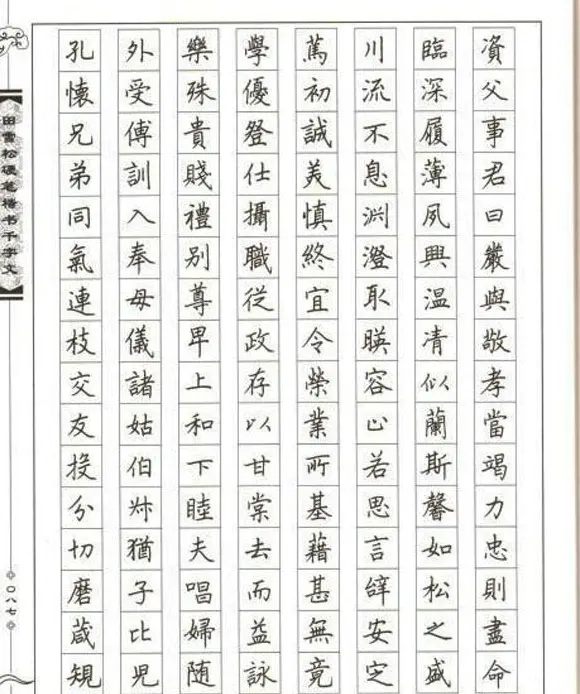 資父事君曰嚴與敬孝當竭力忠則盡命
臨深履薄夙興温清似蘭斯馨如松之盛
川流不息渊澄取暎容止若思言辝安定
篤初誠美慎終宜令榮業所基藉甚無竟
學優登仕攝職從政存以甘棠去而益詠
樂殊貴賤禮別尊卑上和下睦夫唱婦随
外受傅訓入奉母儀諸姑伯叔猶子比兒
孔懷兄弟同氣連枝交友投分切磨箴規
田雪松硬笔楷书千字文
〇八七